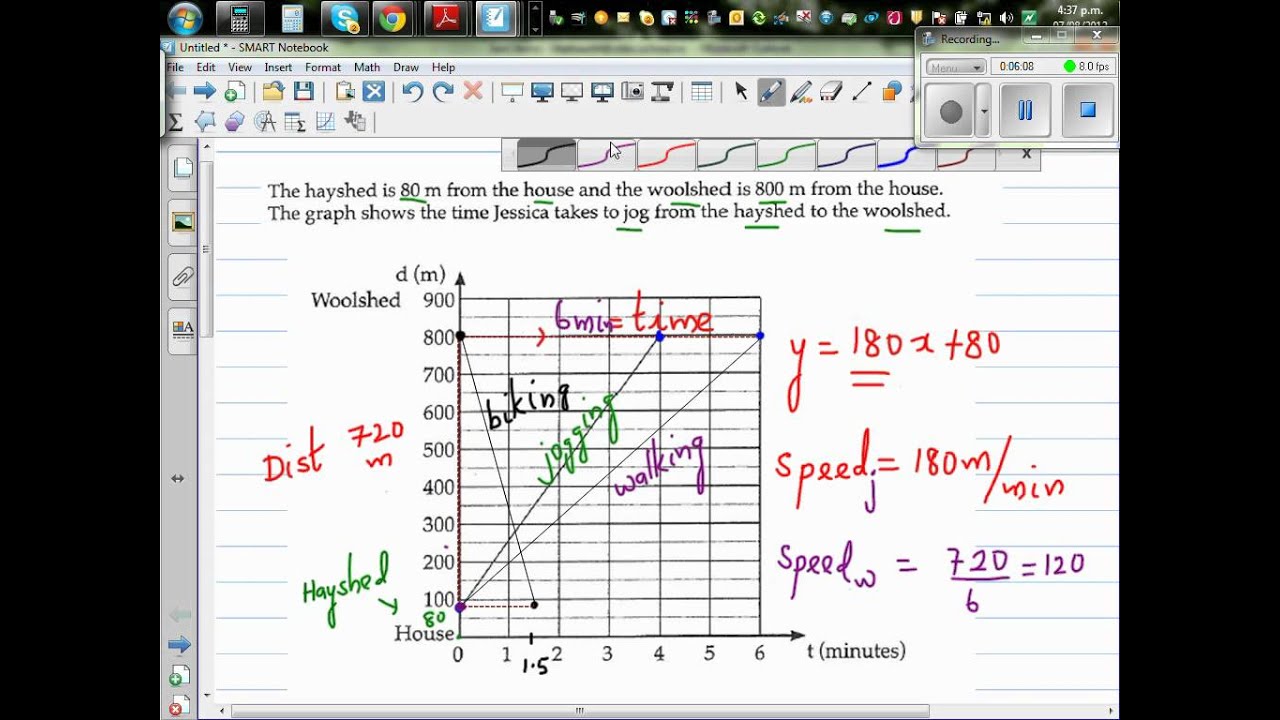 4:37 p.m.
Untitled * - SMART Notebook
Recording...
File Edit View Insert Format Math Draw Help
Menu 0:06:08 8.0 fps
X
The hayshed is 80 m from the house and the woolshed is 800 m from the house.
The graph shows the time Jessica takes to jog from the hayshed to the woolshed.
d (m)
Woolshed 900
6min = time
800
y = 180x + 80
700
biking
600
jogging
Dist 720 m
500
walking
speedj = 180m/min
400
300
200
Speedw = 720/6 = 120
Hayshed
100
80
House
0 1 2 3 4 5 6 t (minutes)
1.5